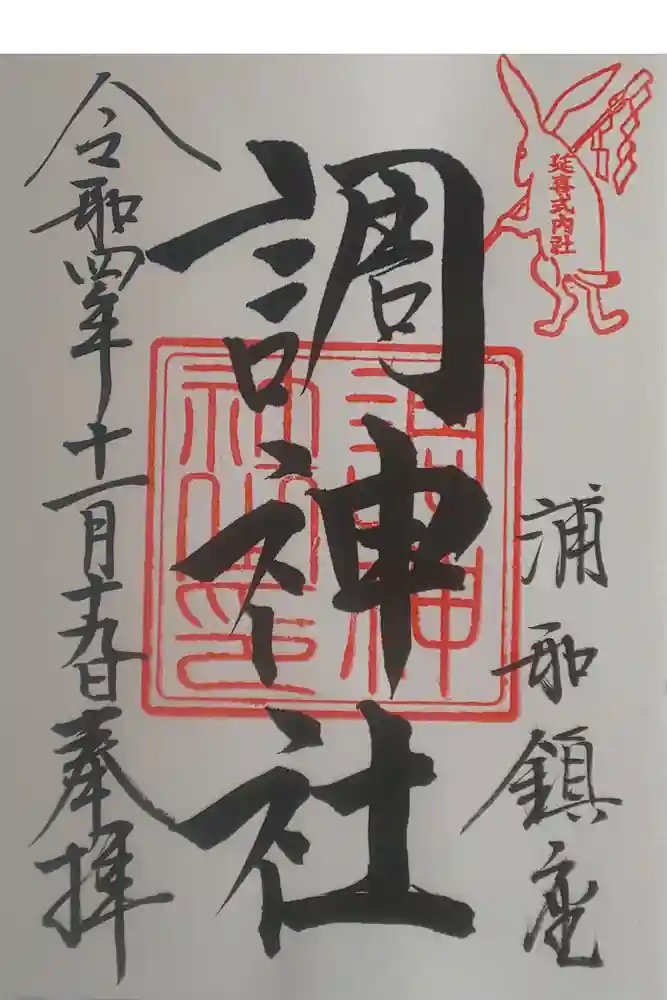 延喜式内社
浦和鎮座
調神社
調神
社之印
令和四年十一月十九日奉拝